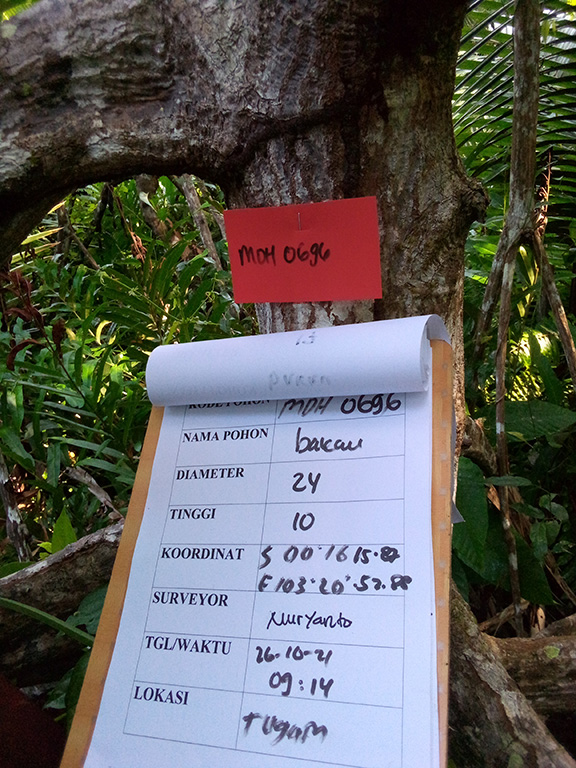 MDH 0696
KODE POHON MDH 0696
NAMA POHON bakau
DIAMETER 24
TINGGI 10
KOORDINAT S 00°16'15.87
E 103°20'52.88
SURVEYOR Nuryanto
TGL/WAKTU 26-10-21
09:14
LOKASI Tugam